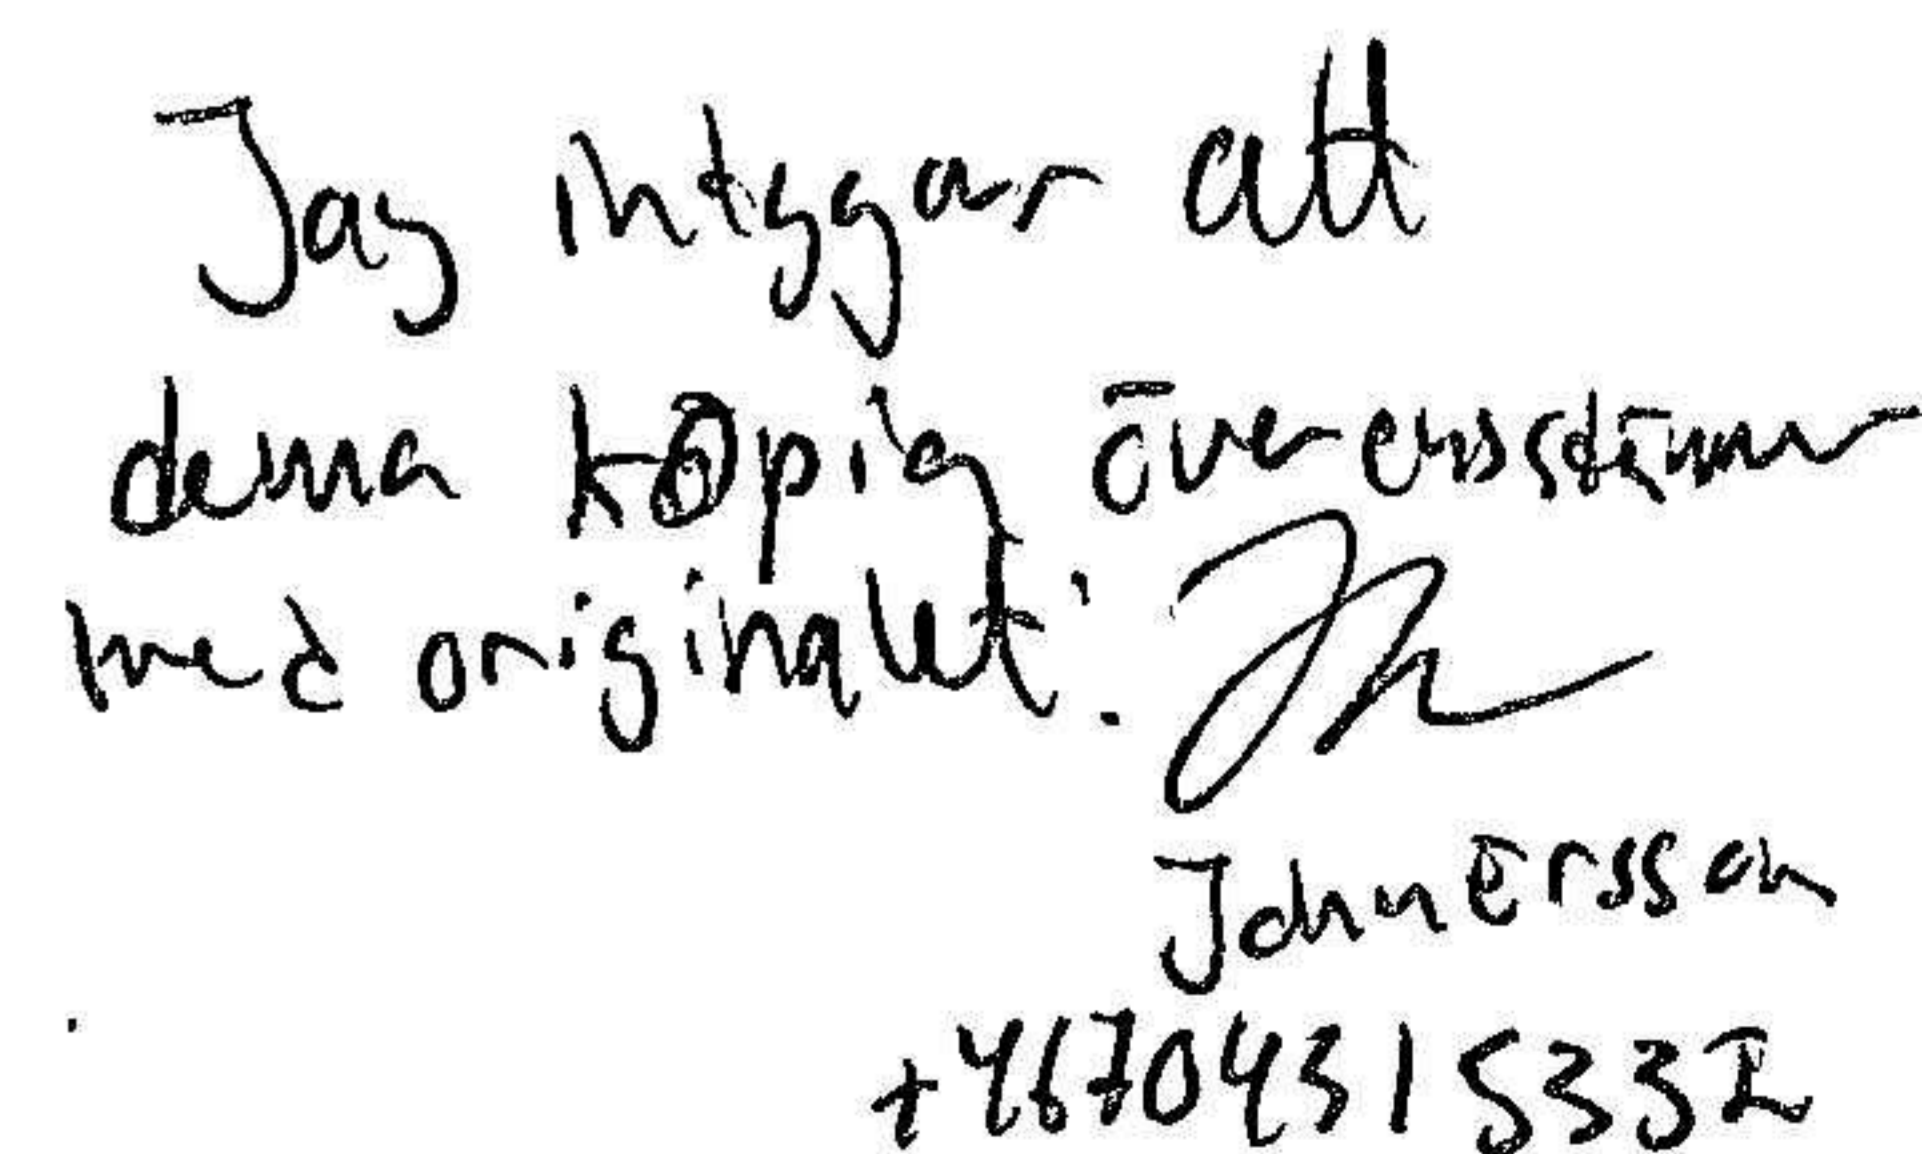 Jag intygar att
denna kopia överensstämmer
med originalet.
John Ersson
+46704315332